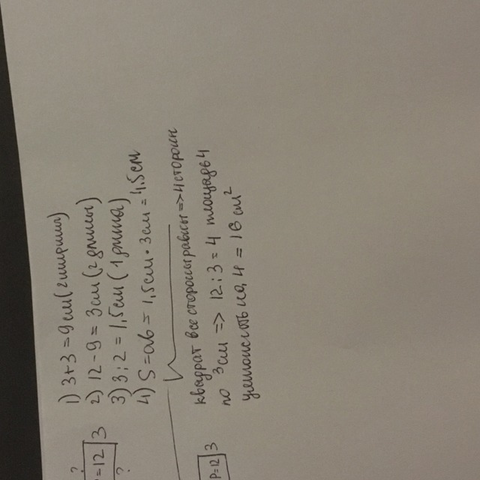 1) 3+3=9см(2 ширины)
2) 12-9=3см(2 длины)
3) 3:2=1,5см(1 длина)
4) S=ab=1,5см·3см=4,5см
?
P=12 3
?
квадрат все стороны равны=>4 сторон
по 3см => 12:3=4 площадь 4
умножить на 4 = 16см²
P=12 3